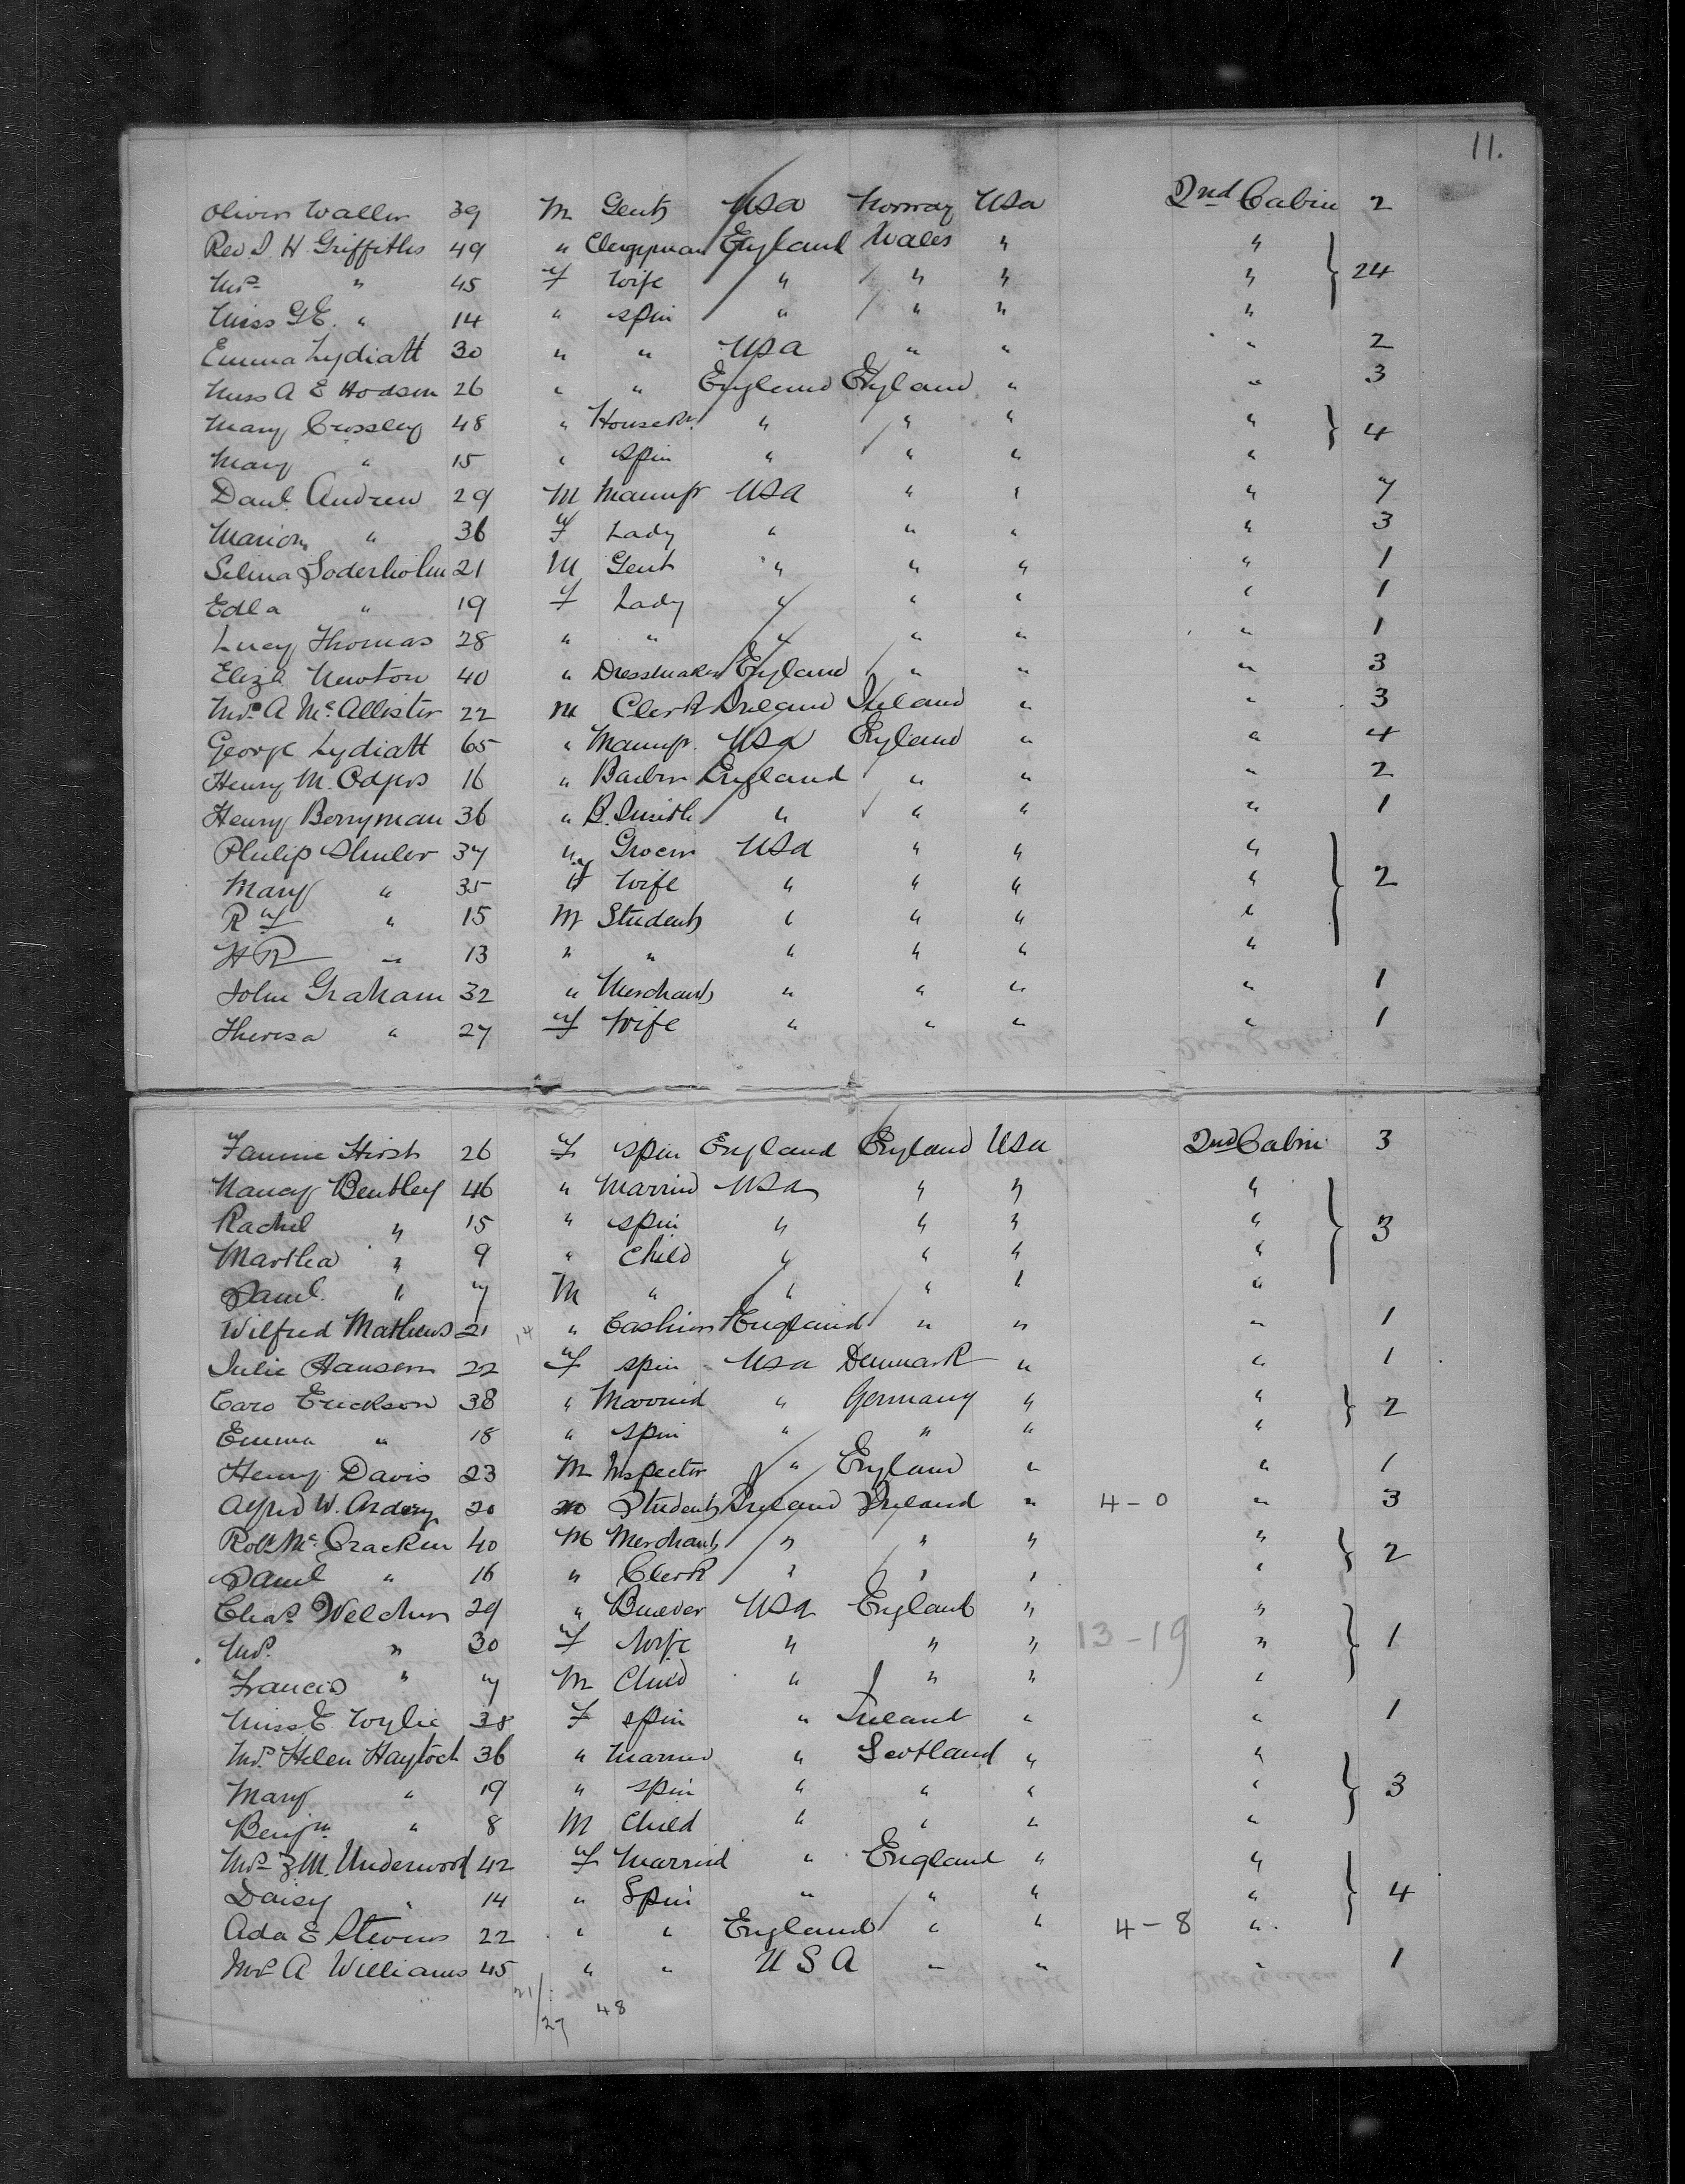 11.
Oliver Waller 39 M Gent USA Norway USA 2nd Cabin 2
Rev. D. H. Griffiths 49 " Clergyman England Wales " " 24
Mrs " 45 F Wife " " " "
Miss G E. " 14 " Spin " " " "
Emma Lydiatt 30 " " USA " " " 2
Miss A E Hodson 26 " " England England " " 3
Mary Crossley 48 " Housekr. " " " " 4
Mary " 15 " Spin " " " "
Danl. Andrew 29 M Manufr USA " " " 7
Marion " 36 F Lady " " " " 3
Selma Soderholm 21 M Gent " " " " 1
Edla " 19 F Lady " " " " 1
Lucy Thomas 28 " " " " " " 1
Eliza Newton 40 " Dressmaker England " " " 3
A McAllister 22 M Clerk Ireland Ireland " " 3
George Lydiatt 65 " Manufr. USA England " " 4
Henry M. Odgers 16 " Barber England " " " 2
Henry Berryman 36 " B. Smith " " " " 1
Philip Shuler 37 " Grocer USA " " " 2
Mary " 35 F Wife " " " "
R F " 15 M Student " " " "
H R " 13 " " " " " "
John Graham 32 " Merchant " " " " 1
Theresa " 27 F Wife " " " " 1
Fannie Hirst 26 F Spin England England USA 2nd Cabin 3
Nancy Bentley 46 " Married USA " " " 3
Rachel " 15 " Spin " " " "
Martha " 9 " Child " " " "
Saml. " 7 M " " " " "
Wilfred Mathews 21 14 " Cashier England " " " 1
Julie Hansen 22 F Spin USA Denmark " " 1
Caro Erickson 38 " Married " Germany " " 2
Emma " 18 " Spin " " " "
Henry Davis 23 M Inspector " England " " 1
Alfred W. Ardery 20 M Student Ireland Ireland " 4-0 " 3
Robt. McCracken 40 M Merchant " " " " 2
Saml " 16 " Clerk " " " "
Chas. Welcher 29 " USA England " " 1
Mrs. " 30 F Wife " " " 13-19 "
Francis " 7 M Child " " " "
Miss E. Wylie 38 F Spin " Ireland " " 1
Mrs. Helen Haytock 36 " Married " Scotland " " 3
Mary " 19 " Spin " " " "
Benjm " 8 M Child " " " "
Mrs Z. M. Underwood 42 F Married " England " " 4
Daisy " 14 " Spin " " " "
Ada E Stevens 22 " " England " " 4-8 "
Mrs A Williams 45 " " USA " " " 1
21/27 48